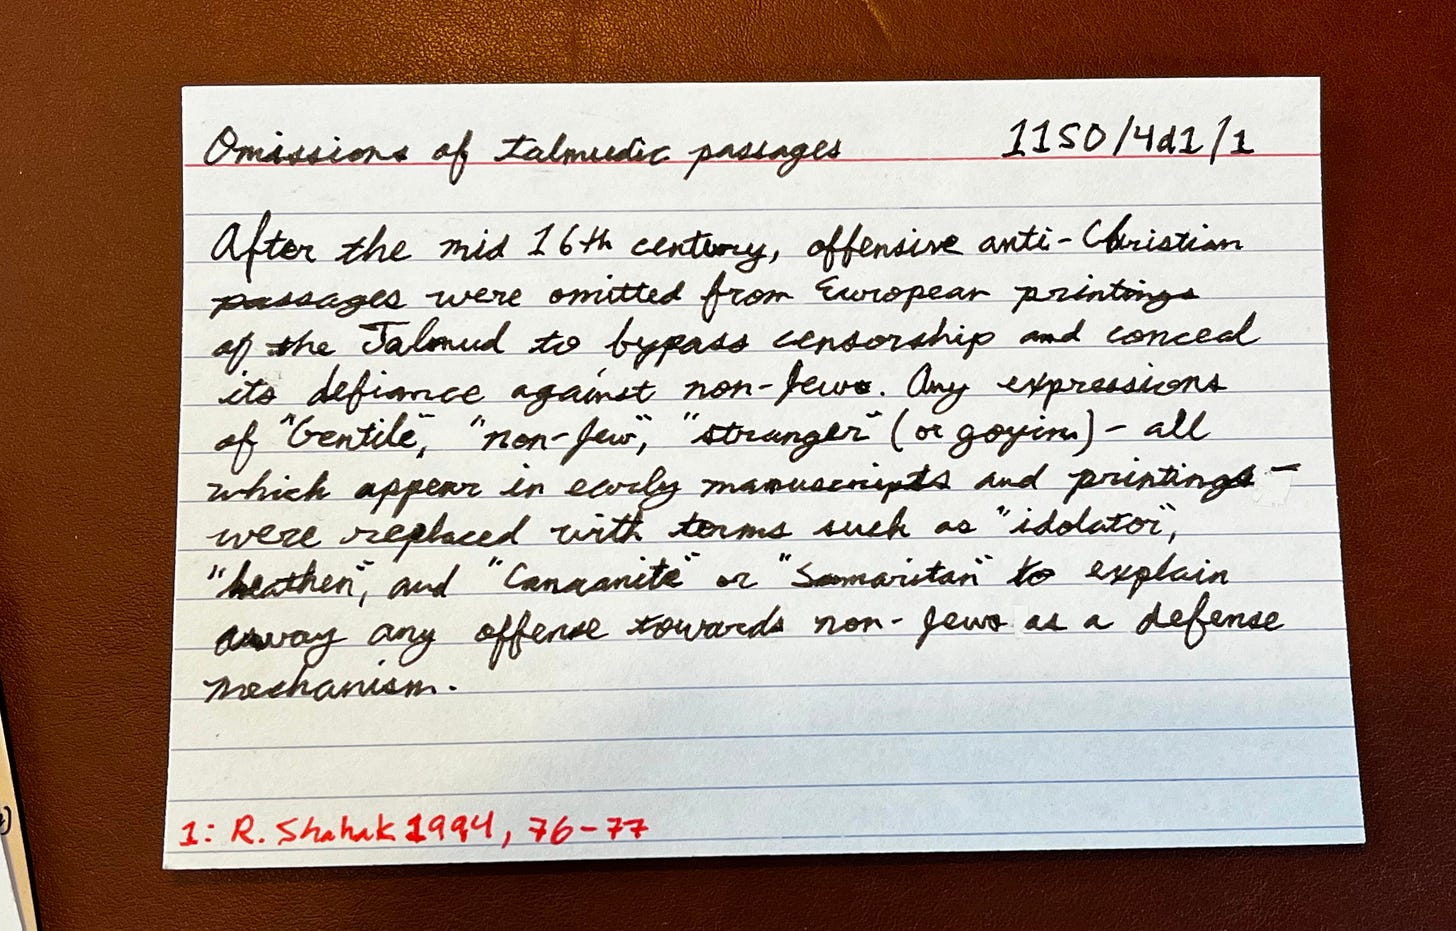 Omissions of talmudic passages 1150/4d1/1
After the mid 16th century, offensive anti-Christian
passages were omitted from European printings
of the Talmud to bypass censorship and conceal
its defiance against non-Jews. Any expressions
of "Gentile", "non-Jew", "stranger" (or goyim) - all
which appear in early manuscripts and printings -
were replaced with terms such as "idolator",
"heathen", and "Canaanite" or "Samaritan" to explain
away any offense towards non-Jews as a defense
mechanism.
1: R. Shahak 1994, 76-77